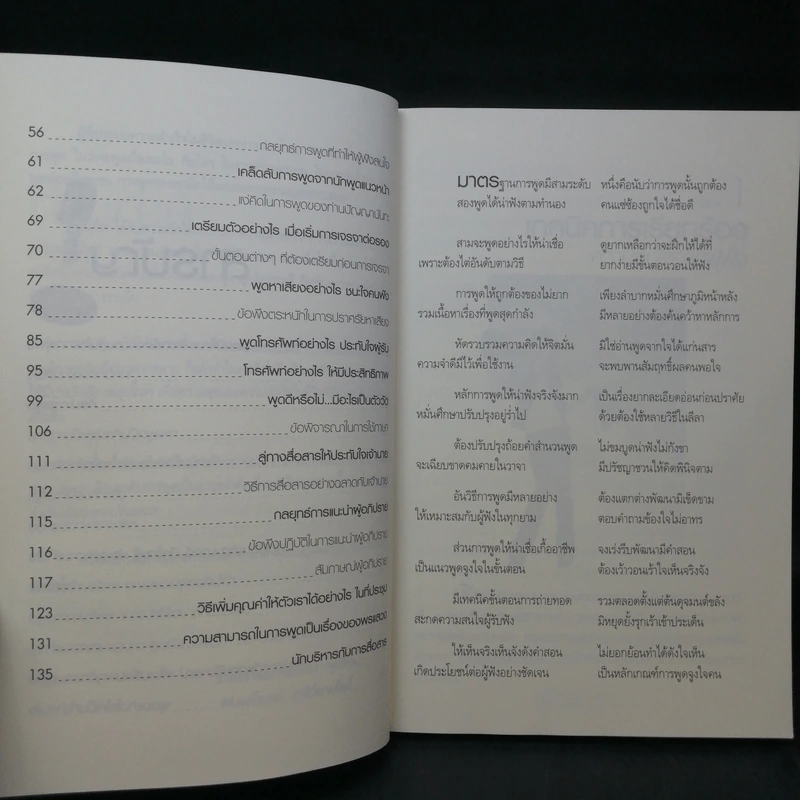 56 กลยุทธ์การพูดที่ทำให้ผู้ฟังสนใจ
61 เคล็ดลับการพูดจากนักพูดแนวหน้า
62 แง่คิดในการพูดของท่านปัญญานันทะ
69 เตรียมตัวอย่างไร เมื่อเริ่มการเจรจาต่อรอง
70 ขั้นตอนต่างๆ ที่ต้องเตรียมก่อนการเจรจา
77 พูดหาเสียงอย่างไร ชนะใจคนฟัง
78 ข้อพึงตระหนักในการปราศรัยหาเสียง
85 พูดโทรศัพท์อย่างไร ประทับใจผู้รับ
95 โทรศัพท์อย่างไร ให้มีประสิทธิภาพ
99 พูดดีหรือไม่...มีอะไรเป็นตัววัด
106 ข้อพิจารณาในการใช้ภาษา
111 สู่ทางสื่อสารให้ประทับใจเจ้านาย
112 วิธีการสื่อสารอย่างฉลาดกับเจ้านาย
115 กลยุทธ์การแนะนำผู้อภิปราย
116 ข้อพึงปฏิบัติในการแนะนำผู้อภิปราย
117 สัมภาษณ์ผู้อภิปราย
123 วิธีเพิ่มคุณค่าให้ตัวเราได้อย่างไร ในที่ประชุม
131 ความสามารถในการพูดเป็นเรื่องของพรแสวง
135 นักบริหารกับการสื่อสาร
มาตรฐานการพูดมีสามระดับ หนึ่งคือนับว่าการพูดนั้นถูกต้อง
สองพูดได้น่าฟังตามทำนอง คนแซ่ซ้องถูกใจได้ชื่อดี
สามจะพูดอย่างไรให้น่าเชื่อ ดูยากเหลือกว่าจะฝึกให้ได้ที่
เพราะต้องไต่อันดับตามวิธี ยากง่ายมีขั้นตอนวอนให้ฟัง
การพูดให้ถูกต้องของไม่ยาก เพียงลำบากหมั่นศึกษาภูมิหน้าหลัง
รวมเนื้อหาเรื่องที่พูดสุดกำลัง มีหลายอย่างต้องค้นคว้าหาหลักการ
หัดรวบรวมความคิดให้จิตมั่น มิใช่อ่านพูดจากใจได้แก่นสาร
ความจำดีมีไว้เพื่อใช้งาน จะพบพานสัมฤทธิ์ผลคนพอใจ
หลักการพูดให้น่าฟังจริงจังมาก เป็นเรื่องยากละเอียดอ่อนก่อนปราศัย
หมั่นศึกษาปรับปรุงอยู่ร่ำไป ด้วยต้องใช้หลายวิธีในลีลา
ต้องปรับปรุงถ้อยคำสำนวนพูด ไม่ขมบูดน่าฟังไม่กังขา
จะเฉียบขาดคมคายในวาจา มีปรัชญาชวนให้คิดพินิจตาม
อันวิธีการพูดมีหลายอย่าง ต้องแตกต่างพัฒนามิเข็ดขาม
ให้เหมาะสมกับผู้ฟังในทุกยาม ตอบคำถามข้องใจไม่อาทร
ส่วนการพูดให้น่าเชื่อเกื้ออาชีพ จงเร่งรีบพัฒนามีคำสอน
เป็นแนวพูดจูงใจในขั้นตอน ต้องเว้าวอนเร้าใจเห็นจริงจัง
มีเทคนิคขั้นตอนการถ่ายทอด รวมตลอดตั้งแต่ต้นดุจมนต์ขลัง
สะกดความสนใจผู้รับฟัง มิหยุดยั้งรุกเร้าเข้าประเด็น
ให้เห็นจริงเห็นจังดังคำสอน ไม่ยอกย้อนทำได้ดังใจเห็น
เกิดประโยชน์ต่อผู้ฟังอย่างชัดเจน เป็นหลักเกณฑ์การพูดจูงใจคน